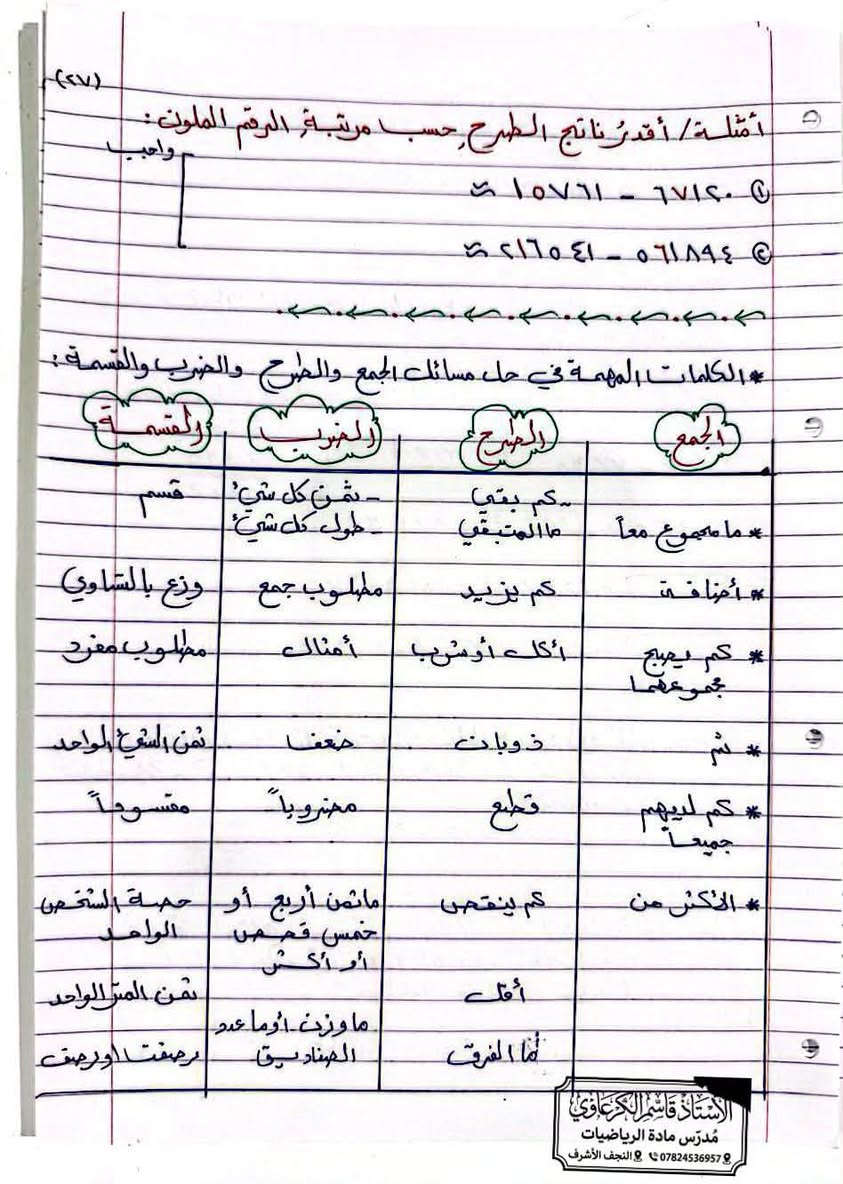 (٢٧)
أمثلة / أقدرُ ناتج الطرح حسب مرتبة الرقم الملون:
واجب
① ٦٧١٢٠ - ١٥٧٦١ ≈
② ٥٦١٨٩٤ - ٢١٦٥٤١ ≈
* الكلمات المهمة في حل مسائل الجمع والطرح والضرب والقسمة:
الجمع الطرح الضرب القسمة
- كم بقي - ثمن كل شيء قسم
* ما مجموع معاً ما المتبقي - طول كل شيء
* أضافة كم يزيد مطلوب جمع وزع بالتساوي
* كم يصبح أكل أو شرب أمثال مطلوب مفرد
مجموعهما
* ثم ذوبان ضعف ثمن الشيء الواحد
* كم لديهم قطع مضروباً مقسوماً
جميعاً
* الأكثر من كم ينقص ما ثمن أربع أو حصة الشخص
خمس قصص الواحد
أو أكثر
أقل ثمن المتر الواحد
ما وزن أو ما عدد
ما الفرق الصناديق رصفت او رصف
الأستاذ قاسم الكرعاوي
مُدرّس مادة الرياضيات
07824536957 النجف الأشرف